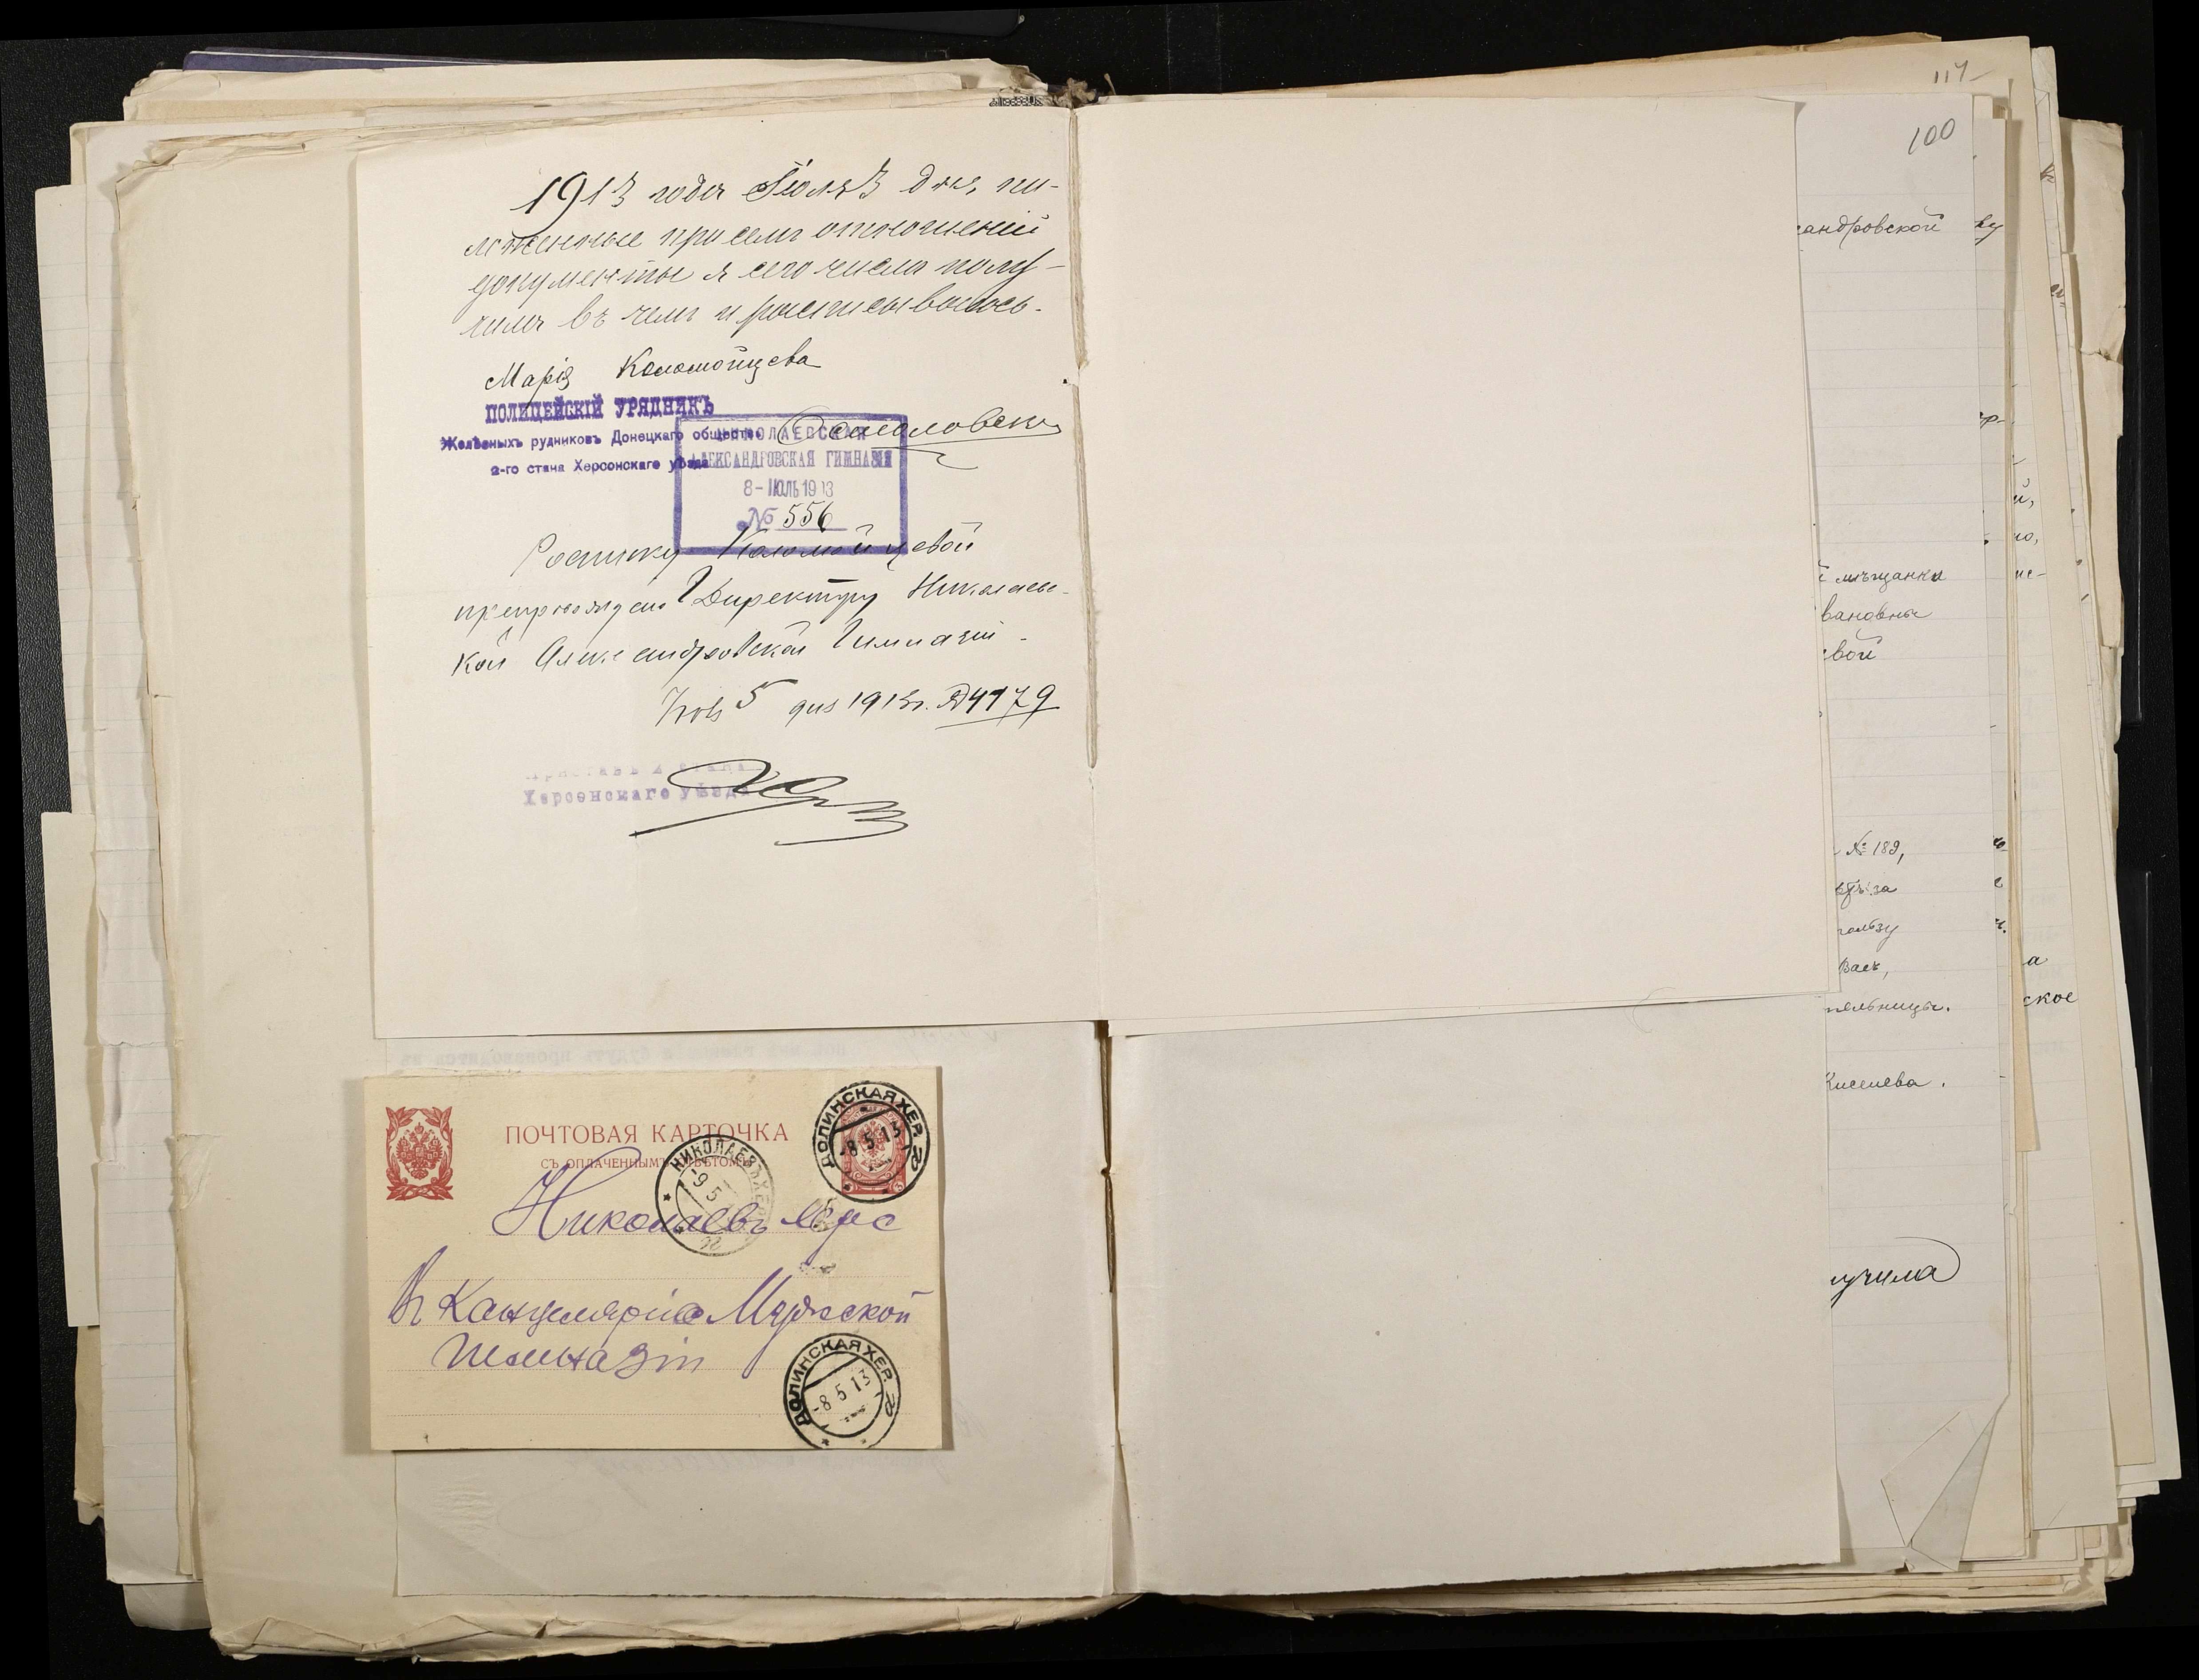 1913 года Іюля 3 дня, пи-
ложенные при семъ отношеніи
документы я сего числа полу-
чилъ въ чемъ и росписываюсь.
Марія Коломойцева
ПОЛИЦЕЙСКІЙ УРЯДНИКЪ
Желѣзныхъ рудниковъ Донецкаго общества
2-го стана Херсонскаго уѣзда
НИКОЛАЕВСКАЯ
АЛЕКСАНДРОВСКАЯ ГИМНАЗІЯ
8-ІЮЛЬ 1913
№ 556
Росписку Коломойцевой
препровождаю Директору Николаев-
кой Александровской Гимназіи.
5 дня 1913 г. № 4179
Приставъ 2 стана
Херсонскаго уѣзда
ПОЧТОВАЯ КАРТОЧКА
СЪ ОПЛАЧЕННЫМЪ ОТВѢТОМЪ
ДОЛИНСКАЯ ХЕР.
-8 5 13
НИКОЛАЕВЪ ХЕР
-9 5
Николаевъ Херс
Въ Канцелярію Мужской
Гимназіи
ДОЛИНСКАЯ ХЕР.
-8 5 13
117
100
андровской
мѣщанка
вановны
вой
№ 189,
за
пользу
Васъ,
тельницы.
Киселева.
учила
ское